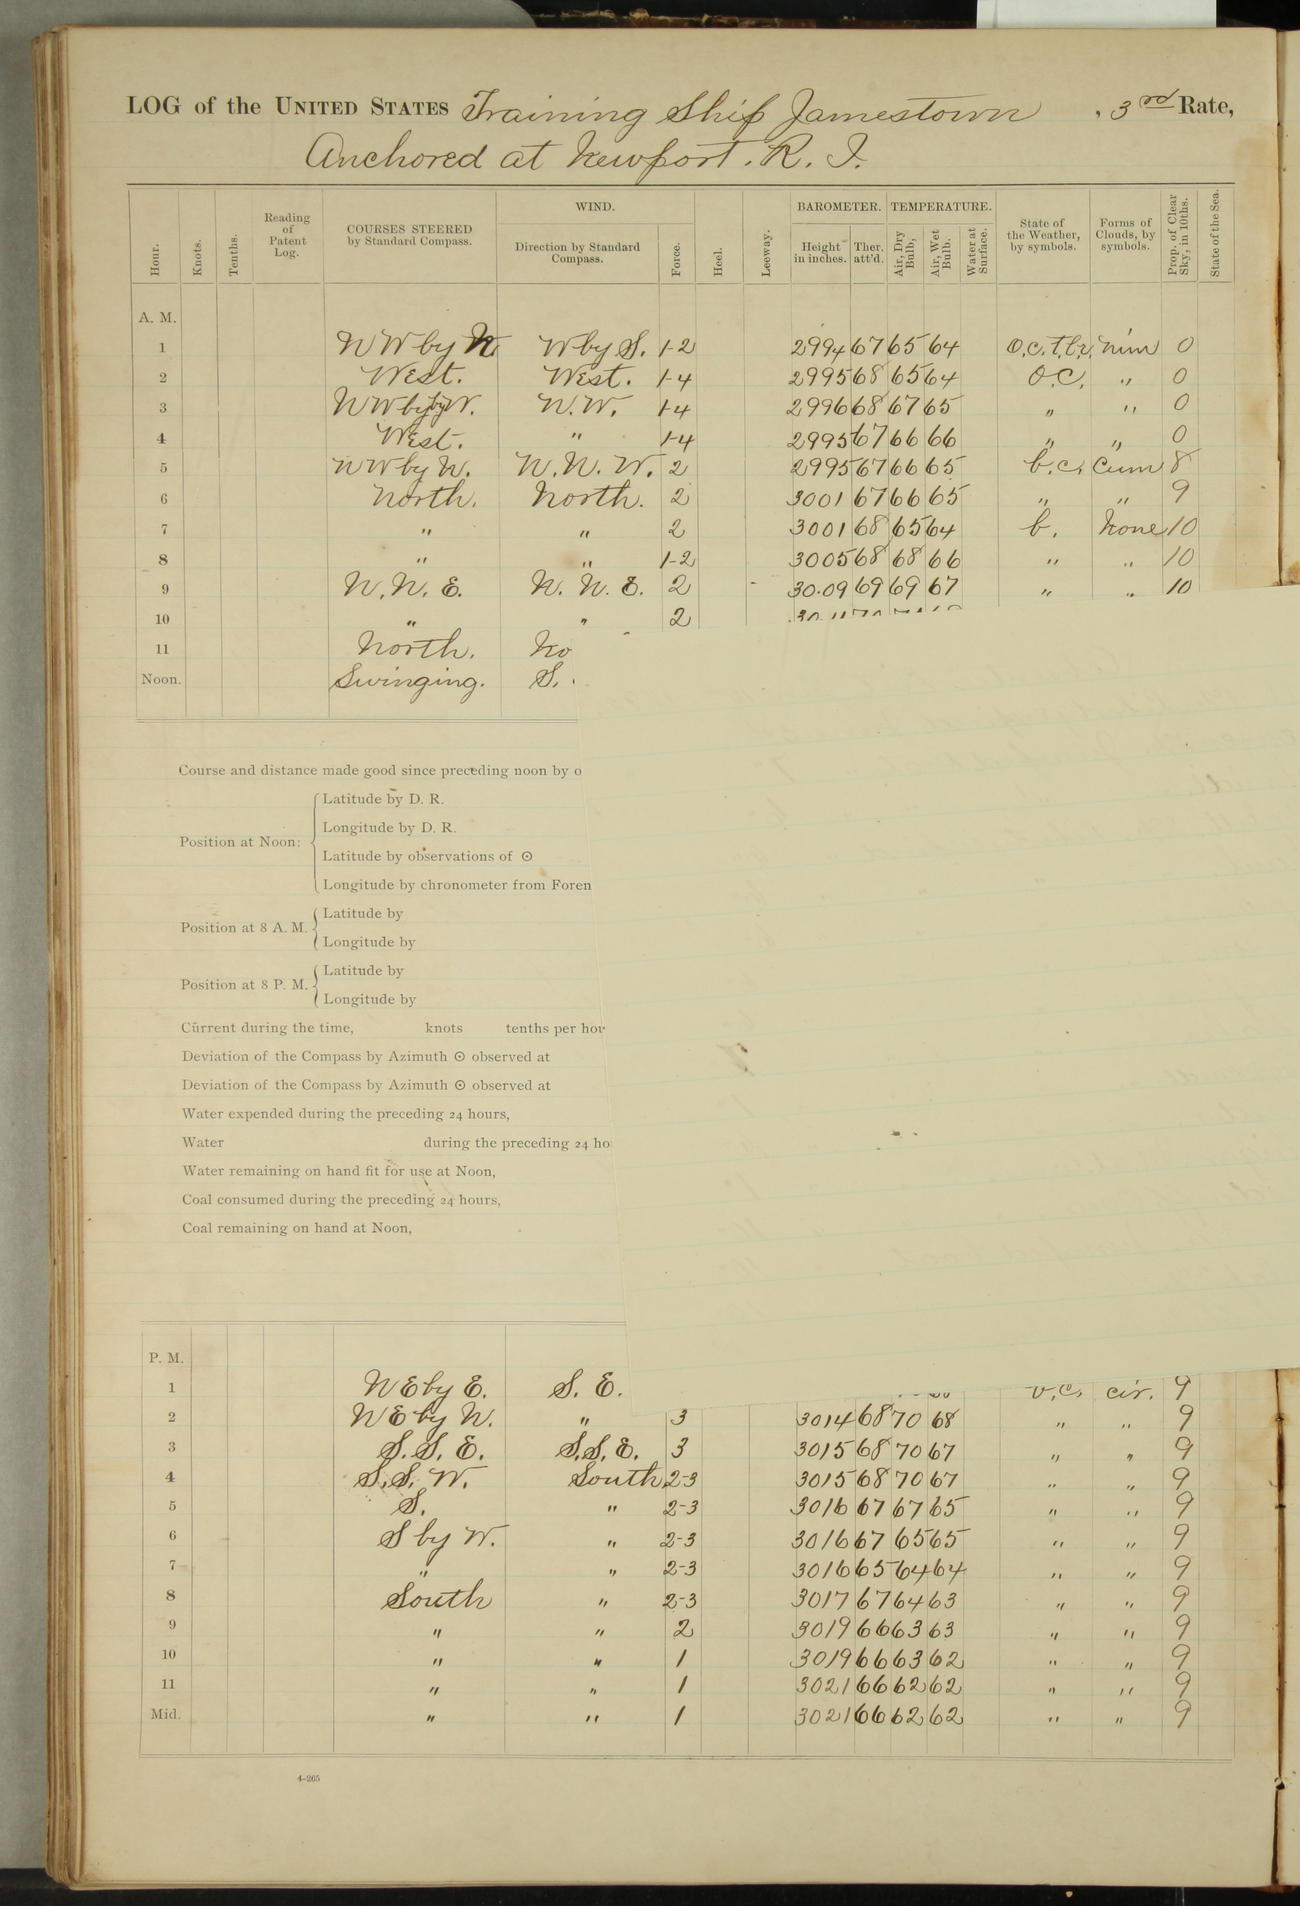 LOG of the UNITED STATES Training Ship Jamestown , 3rd Rate,
Anchored at Newport. R. I.
Hour. Knots. Tenths. Reading of Patent Log. COURSES STEERED by Standard Compass. WIND. Direction by Standard Compass. Force. Heel. Leeway. BAROMETER. Height in inches. Ther. att'd. TEMPERATURE. Air, Dry Bulb, Air, Wet Bulb. Water at Surface. State of the Weather, by symbols. Forms of Clouds, by symbols. Prop. of Clear Sky, in 10ths. State of the Sea.
A. M.
1 NW by W by S. 1-2 2994 67 65 64 o.c.t.l.r. nim 0
2 West. West. 1-4 2995 68 65 64 o.c. " 0
3 NW by W. N.W. 1-4 2996 68 67 65 " " 0
4 West. " 1-4 2995 67 66 66 " " 0
5 NW by W. W.N.W. 2 2995 67 66 65 b.c. Cum 8
6 North. North. 2 3001 67 66 65 " " 9
7 " " 2 3001 68 65 64 b. None 10
8 " " 1-2 3005 68 68 66 " " 10
9 N.N.E. N.N.E. 2 30.09 69 69 67 " " 10
10 " " 2
11 North. No
Noon. Swinging. S.
Course and distance made good since preceding noon by o
Position at Noon:
Latitude by D. R.
Longitude by D. R.
Latitude by observations of ⊙
Longitude by chronometer from Foren
Position at 8 A. M.
Latitude by
Longitude by
Position at 8 P. M.
Latitude by
Longitude by
Current during the time, knots tenths per hou
Deviation of the Compass by Azimuth ⊙ observed at
Deviation of the Compass by Azimuth ⊙ observed at
Water expended during the preceding 24 hours,
Water during the preceding 24 ho
Water remaining on hand fit for use at Noon,
Coal consumed during the preceding 24 hours,
Coal remaining on hand at Noon,
P. M.
1 NE by E. S. E. b.c. cir. 9
2 NE by N. " 3 3014 68 70 68 " " 9
3 S.S.E. S.S.E. 3 3015 68 70 67 " " 9
4 S.S.W. South 2-3 3015 68 70 67 " " 9
5 S. " 2-3 3016 67 67 65 " " 9
6 S by W. " 2-3 3016 67 65 65 " " 9
7 " " 2-3 3016 65 64 64 " " 9
8 South " 2-3 3017 67 64 63 " " 9
9 " " 2 3019 66 63 63 " " 9
10 " " 1 3019 66 63 62 " " 9
11 " " 1 3021 66 62 62 " " 9
Mid. " " 1 3021 66 62 62 " " 9
4-265